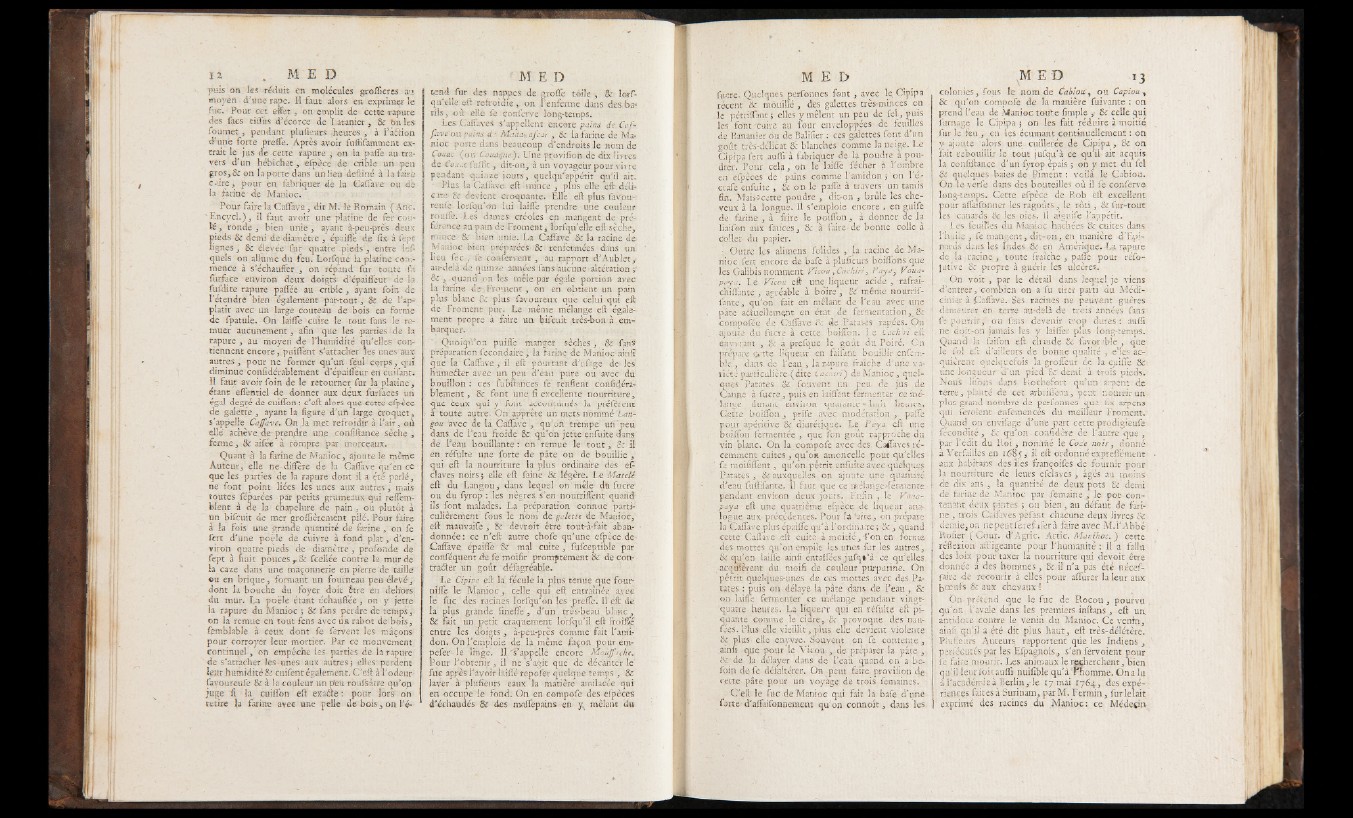 12 M E D
puis on les réduit en molécules grossières au
moyen d'une rape. Il faut alors en exprimer le
suc. Pour cet effet, on emplit de cette rapure
des sacs tissus d'écorce de Latanier, & on les
soumet, pendant plusieurs heures, à l'action
d'une forte presse. Après avoir suffisamment ex-
trait le jus de cette rapure, on la passe au tra-
vers d'un hébichet, espèce de crible un peu
gros, & on la porte dans un lieu destiné à la faire
cuire, pour en fabriquer de la Cassave ou de
la farine de Manioc.
Pour faire la Cassave, dit M. le Romain (Anc.
Encycl.), il faut avoir une platine de fer cou-
lé, ronde, bien unie, ayant à-peu-près deux
pieds & demi de diamètre, épaisse de six à sept
lignes, & élevée sur quatre pieds, entre les-
quels on allume du feu. Lorsque la platine com-
mence à s'échauffer, on répand sur toute sa
surface environ deux doigts d'épaisseur de la
susdite rapure passée au crible, ayant soin de
l'étendre bien également par-tout, & de l'ap-
platir avec un large couteau de bois en forme
de spatule. On laisse cuire le tout sans le re-
muer aucunement, afin que les parties de la
rapure, au moyen de l'humidité qu'elles con-
tiennent encore, puissent s'attacher les unes aux
autres, pour ne former qu'un seul corps, qui
diminue considérablement d'épaisseur en cuisant.
Il faut avoir soin de le retourner sur la platine,
étant essentiel de donner aux deux surfaces un
égal degré de cuisson: c'est alors que cette espèce
de galette, ayant la figure d'un large croquet,
s'appelle Cassave. On la met refroidir à l'air, où
elle achève de prendre une consistance sèche,
ferme, & aisée à rompre par morceaux.
Quant à la farine de Manioc, ajoute le même
Auteur, elle ne diffère de la Cassave qu'en ce
que les parties de la rapure dont il a été parlé,
ne sont point liées les unes aux autres, mais
toutes séparées par petits grumeaux qui ressem-
blent à de la chapelure de pain, ou plutôt à
un biscuit de mer grossièrement pilé. Pour faire
à la fois une grande quantité de farine, on se
sert d'une poêle de cuivre à fond plat, d'en-
viron quatre pieds de diamètre, profonde de
sept à huit pouces, & scellée contre le mur de
la case dans une maçonnerie en pierre de taille
ou en brique, formant un fourneau peu élevé,
dont la bouche du foyer doit être en dehors
du mur. La poêle étant échauffée, on y jette
la rapure du Manioc; & sans perdre de temps,
on la remue en tout sens avec un rabot de bois,
semblable à ceux dont se servent les maçons
pour corroyer leur mortier. Par ce mouvement
continuel, on empêche les parties de la rapure
de s'attacher les unes aux autres; elles perdent
leur humidité & cuisent également. C'est à l'odeur
savoureuse & à la couleur un peu roussâtre qu'on
juge si la cuisson est exacte: pour lors on
retire la farine avec une pelle de bois, on l'é-
M E D
tend sur des nappes de grosse toile, & lors-
qu'elle est refroidie, on l'enferme dans des ba-
rils, où elle se conserve long-temps.
Les Cassaves s'appellent encore pains de Cas-
save ou pains de Madagascar, & la farine de Ma-
nioc porte dans beaucoup d'endroits le nom de
Couac (ou Couaque). Une provision de dix livres
de Couac suffit, dit-on, à un voyageur pour vivre
pendant quinze jours, quelqu'appétit qu'il ait.
Plus la Cassave est mince, plus elle est déli-
cate & devient croquante. Elle est plus savou-
reuse lorsqu'on lui laisse prendre une couleur
rousse. Les dames créoles en mangent de pré-
férence au pain de Froment, lorsqu'elle est sèche,
mince & bien unie. La Cassave & la racine de
Manioc bien préparées & renfermées dans un
lieu sec, se conservent, au rapport d'Aublet,
au-delà de quinze années sans aucune altération;
&, quand on les mêle par égale portion avec
la farine de Froment, on en obtient un pain
plus blanc & plus savoureux que celui qui est
de Froment pur. Le même mélange est égale-
ment propre à faire un biscuit très-bon à em-
barquer.
Quoiqu'on puisse manger sèches, & sans
préparation secondaire, la farine de Manioc ainsi
que la Cassave, il est pourtant d'usage de les
humecter avec un peu d'eau pure ou avec du
bouillon: ces substances se renflent considéra-
blement, & font une si excellente nourriture,
que ceux qui y sont accoutumés la préfèrent
à toute autre. On apprête un mets nommé Lan-
gou avec de la Cassave, qu'on trempe un peu
dans de l'eau froide & qu'on jette ensuite dans
de l'eau bouillante: on remue le tout, & il
en résulte une forte de pâte ou de bouillie,
qui est la nourriture la plus ordinaire des es-
claves noirs; elle est saine & légère. Le Matelé
est du Langou, dans lequel on mêle du sucre
ou du syrop: les nègres s'en nourrissent quand
ils sont malades. La préparation connue parti-
culièrement sous le nom de galette de Manioc,
est mauvaise, & devroit être tout-à-fait aban-
donnée: ce n'est autre chose qu'une espèce de
Cassave épaisse & mal cuite, susceptible par
conséquent de se moisir promptement & de con-
tracter un goût désagréable.
Le Cipipa est la fécule la plus tenue que four-
nisse le Manioc, celle qui est entraînée avec
le suc des racines lorsqu'on les presse. Il est de
la plus grande finesse, d'un très-beau blanc,
& fait un petit craquement lorsqu'il est froissé
entre les doigts, à-peu-près comme fait l'ami-
don. On l'emploie de la même façon pour em-
peser le linge. Il s'appelle encore Moussache.
Pour l'obtenir, il ne s'agit que de décanter le
suc après l'avoir laissé reposer quelque temps, &
laver à plusieurs eaux la matière amilacée qui
en occupe le fond. On en compose des espèces
d'échaudés & des massepains en y mêlant du
M E D
sucre. Quelques personnes font, avec le Cipipa
récent & mouillé, des galettes très-minces en
le pétrissant; elles y mêlent un peu de sel, puis
les font cuire au four enveloppées de feuilles
de Bananier ou de Balisier: ces galettes sont d'un
goût très-délicat & blanches comme la neige. Le
Cipipa sert aussi à fabriquer de la poudre à pou-
drer. Pour cela, on le laisse sécher à l'ombre
en espèces de pains comme l'amidon; on l'é-
crase ensuite, & on le passe à travers un tamis
fin. Mais cette poudre, dit-on, brûle les che-
veux à la longue. Il s'emploie encore, en guise
de farine, à frire le poisson, à donner de la
liaison aux sauces, & à faire de bonne colle à
coller du papier.
Outre les alimens solides, la racine de Ma-
nioc sert encore de base à plusieurs boissons que
les Galibis nomment Vicou, Cachiri, Paya, Voua-
paya. Le Vicou est une liqueur acide, rafraî-
chissante, agréable à boire, & même nourris-
sante, qu'on fait en mêlant de l'eau avec une
pâte actuellement en état de fermentation, &
composée de Cassave & de Patates rapées. On
ajoute du sucre à cette boisson. Le Cachiri est
enyvrant, & a presque le goût du Poiré. On
prépare cette liqueur en faisant bouillir ensem-
ble, dans de l'eau, la rapure fraîche d'une va-
riété particulière (dite Cachiri) de Manioc, quel-
ques Patates & souvent un peu de jus de
Canne à sucre, puis en laissant fermenter ce mé-
lange durant environ quarante-huit heures.
Cette boisson, prise avec modération, passe
pour apéritive & diurétique. Le Paya est une
boisson fermentée, que son goût rapproche du
vin blanc. On la compose avec des Cassaves ré-
cemment cuites, qu'on amoncelle pour qu'elles
se moisissent, qu'on pétrit ensuite avec quelques
Patates, & auxquelles on ajoute une quantité
d'eau suffisante. Il faut que ce mélange fermente
pendant environ deux jours. Enfin, le Voua-
paya est une quatrième espèce de liqueur ana-
logue aux précédentes. Pour la faire, on prépare
la Cassave plus épaisse qu'à l'ordinaire; &, quand
cette Cassave est cuite à moitié, l'on en forme
des mottes qu'on empile les unes sur les autres,
& qu'on laisse ainsi entassées jusqu'à ce qu'elles
acquièrent du moisi de couleur purpurine. On
pétrit quelques-unes de ces mottes avec des Pa-
tates: puis on délaye la pâte dans de l'eau, &
on laisse fermenter ce mélange pendant vingt-
quatre heures. La liqueur qui en résulte est pi-
quante comme le cidre, & provoque des nau-
sées. Plus elle vieillit, plus elle devient violente
& plus elle enyvre. Souvent on se contente,
ainsi que pour le Vicou, de préparer la pâte,
& de la délayer dans de l'eau quand on a be-
soin de se désaltérer. On peut faire provision de
cette pâte pour un voyage de trois semaines.
C'est le suc de Manioc qui fait la base d'une
sorte d'assaisonnement qu'on connoît, dans les
M E D 13
colonies, sous le nom de Cabiou, ou Capiou,
& qu'on compose de la manière suivante: on
prend l'eau de Manioc toute simple, & celle qui
surnage le Cipipa; on les fait réduire à moitié
sur le feu, en les écumant continuellement: on
y ajoute alors une cuillerée de Cipipa, & on
fait rebouillir le tout jusqu'à ce qu'il ait acquis
la consistance d'un syrop épais; on y met du sel
& quelques baies de Piment: voilà le Cabiou.
On le verse dans des bouteilles où il se conserve
long-temps. Cette espèce de Rob est excellent
pour assaisonner les ragoûts, le rôti, & sur-tout
les canards & les oies. Il aiguise l'appétit.
Les feuilles du Manioc hachées & cuites dans
l'huile, se mangent, dit-on, en manière d'Epi-
nards dans les Indes & en Amérique. La rapure
de la racine, toute fraîche, passe pour réso-
lutive & propre à guérir les ulcères.
On voit, par le détail dans lequel je viens
d'entrer, combien on a su tirer parti du Médi-
cinier à Cassave. Ses racines ne peuvent guères
demeurer en terre au-delà de trois années sans
se pourrir, ou sans devenir trop dures: aussi
ne doit-on jamais les y laisser plus long-temps.
Quand la saison est chaude & favorable, que
le sol est d'ailleurs de bonne qualité, elles ac-
quièrent quelquefois la grosseur de la cuisse &
une longueur d'un pied & demi à trois pieds.
Nous lisons dans Rochefort qu'un arpent de
terre, planté de cet arbrisseau, peut nourrir un
plus grand nombre de personnes que six arpens
qui seroient ensemencés du meilleur Froment.
Quand on envisage d'une part cette prodigieuse
fécondité, & qu'on considère de l'autre que,
par l'édit du Roi, nommé le Code noir, donné
à Versailles en 1685, il est ordonné expressément
aux habitans des isles françoises de fournir pour
la nourriture de leurs esclaves, âgés au moins
de dix ans, la quantité de deux pots & demi
de farine de Manioc par semaine, le pot con-
tenant deux pintes; ou bien, au défaut de fari-
ne, trois Cassaves pesant chacune deux livres &
demie, on ne peut se refuser à faire avec M. l'Abbé
Rosier (Cour. d'Agric. Artic. Manihot.) cette
réflexion affligeante pour l'humanité: Il a fallu
des loix pour taxer la nourriture qui devoit être
donnée à des hommes, & il n'a pas été néces-
saire de recourir à elles pour assurer la leur aux
bœufs & aux chevaux!
On prétend que le suc de Rocou, pourvu
qu'on l'avale dans les premiers instans, est un
antidote contre le venin du Manioc. Ce venin,
ainsi qu'il a été dit plus haut, est très-délétère.
Plusieurs Auteurs rapportent que les Indiens,
persécutés par les Espagnols, s'en servoient pour
se faire mourir. Les animaux le recherchent, bien
qu'il leur soit aussi nuisible qu'à l'homme. On a lu
à l'académie à Berlin, le 17 mai 1764, des expé-
riences faites à Surinam, par M. Fermin, sur le lait
exprimé des racines du Manioc: ce Médecin